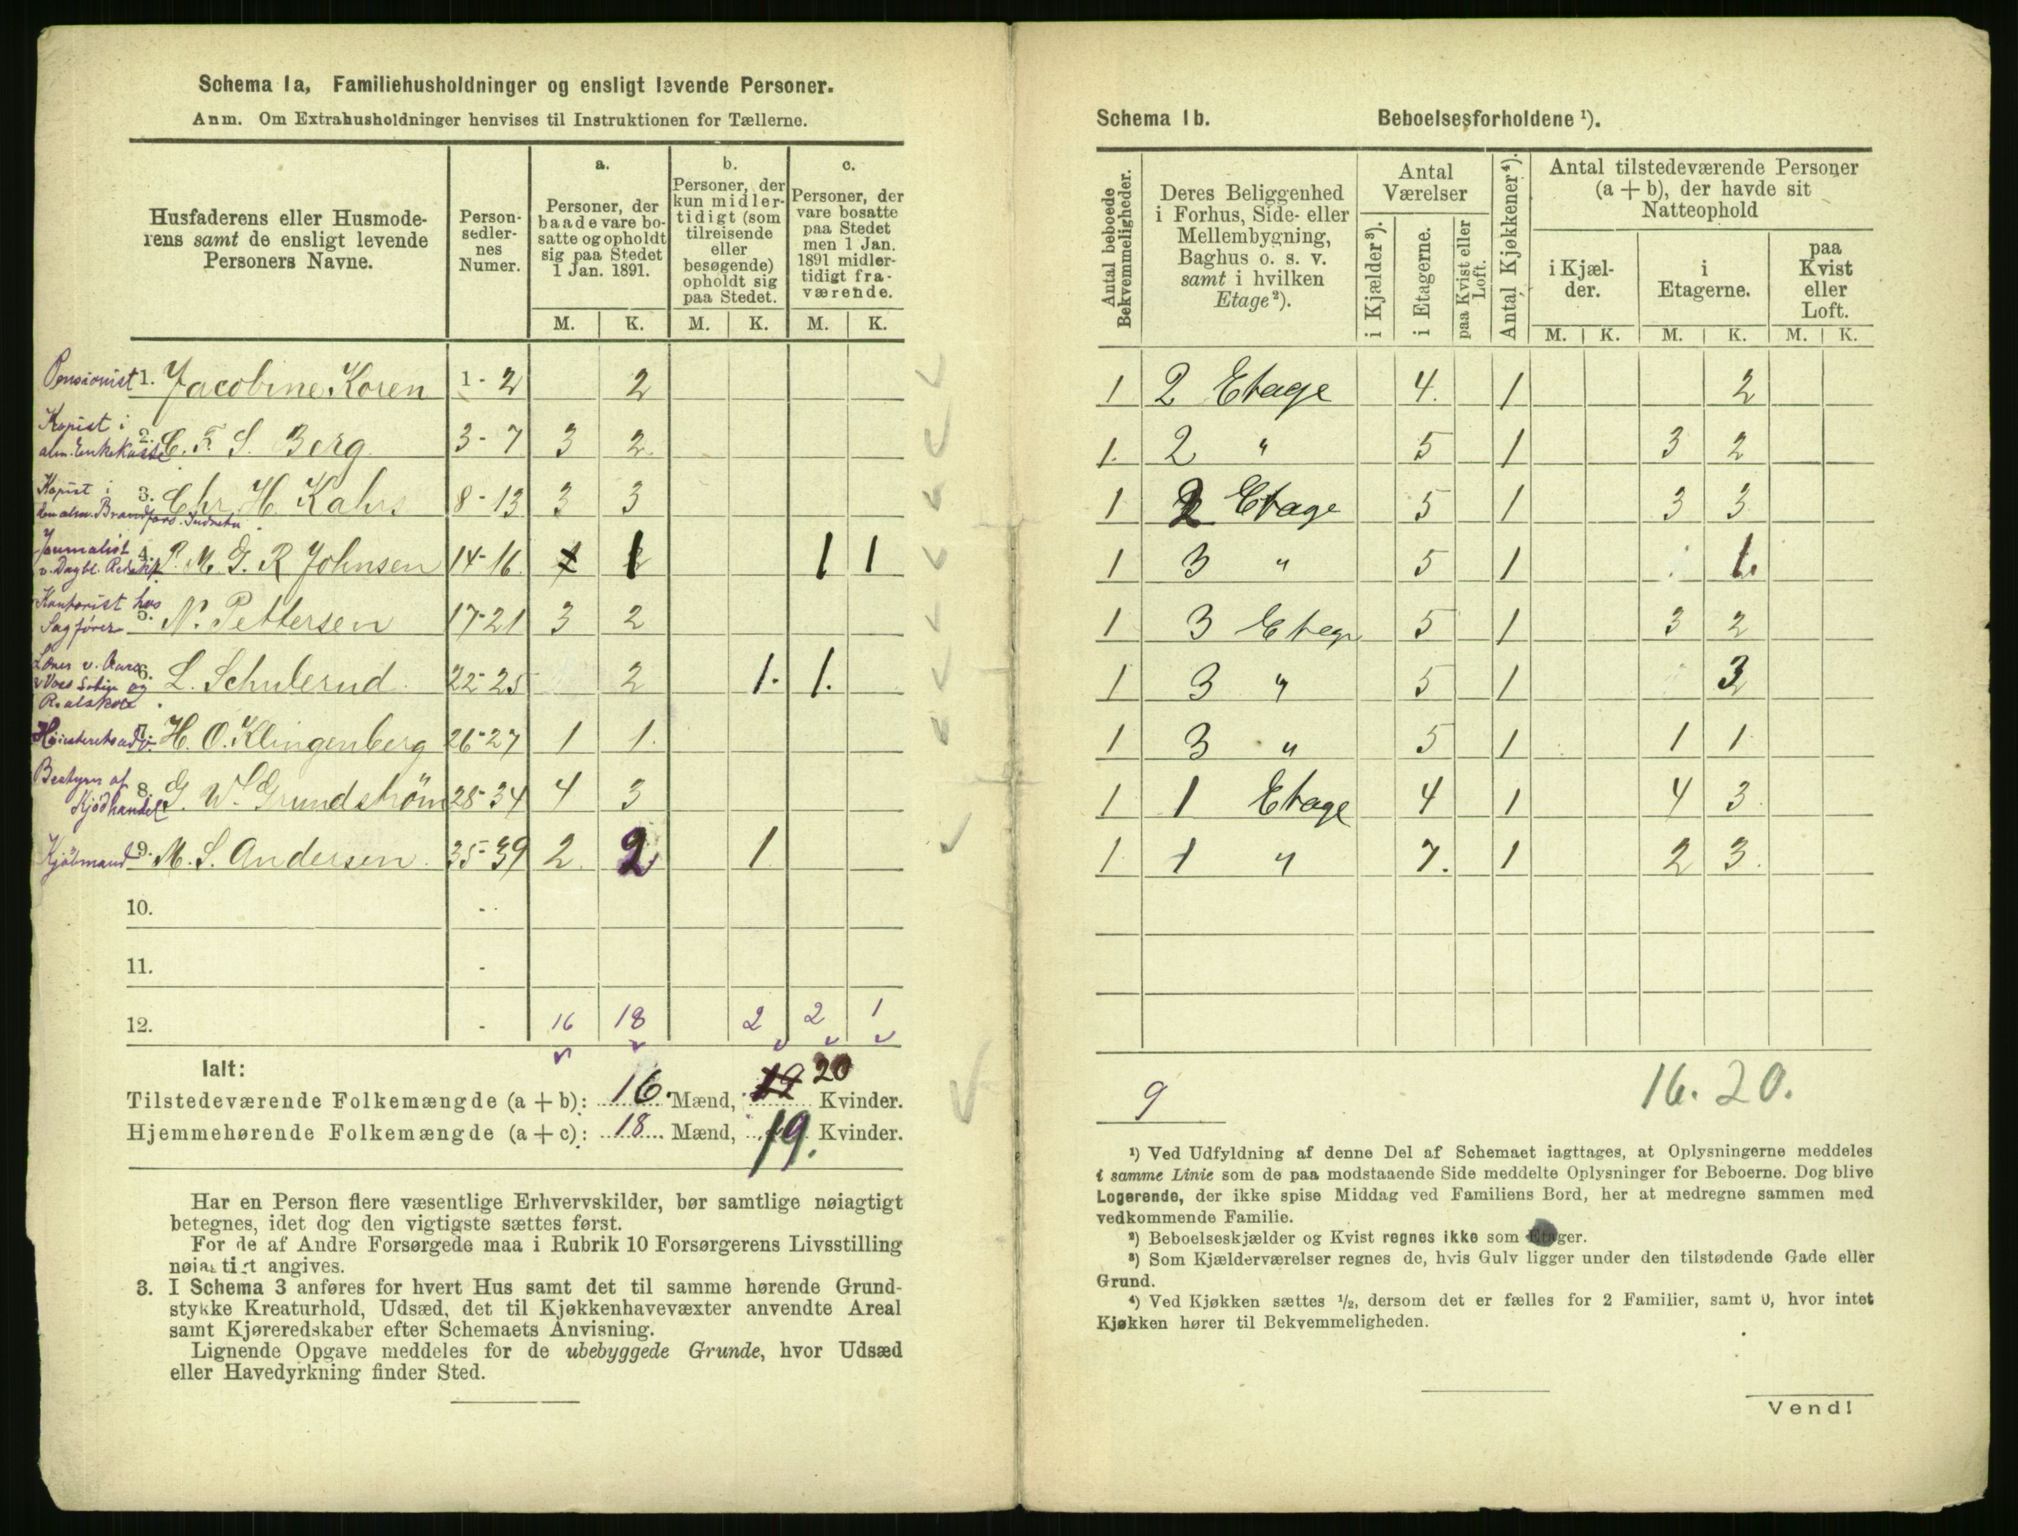 Schema 1a, Familiehusholdninger og ensligt levende Personer.
Anm. Om Extrahusholdninger henvises til Instruktionen for Tællerne.
Husfaderens eller Husmoderens samt de ensligt levende Personers Navne.
Personsedlernes Numer.
a. Personer, der baade vare bosatte og opholdt sig paa Stedet 1 Jan. 1891.
b. Personer, der kun midlertidigt (som tilreisende eller besøgende) opholdt sig paa Stedet.
c. Personer, der vare bosatte paa Stedet men 1 Jan. 1891 midlertidigt fraværende.
M. K. M. K. M. K.
Pensionist 1. Jacobine Koren 1-2 2
Kopist i alm. Enkekasse 2. C. F. S. Berg 3-7 3 2
Kopist i den alm. Brandfors. Indretn. 3. Chr. H Kahrs 8-13 3 3
Journalist v. Dagbl. Redakt. 4. P. M. G. R Johnsen 14-16 1 1 1
Kontorist hos Sagfører 5. N. Pettersen 17-21 3 2
6. L. Schulerud 22-25 2 1. 1.
Høiesteretsadv. 7. H. O. Klingenberg 26-27 1 1
Bestyrer af Kjødhandel 8. G. W. Grundstrøm 28-34 4 3
Kjøbmand 9. M. S. Andersen 35-39 2 2 1
10. -
11. -
12. - 16 18 2 2 1
Ialt:
Tilstedeværende Folkemængde (a + b): 16. Mænd, 19 20 Kvinder.
Hjemmehørende Folkemængde (a + c): 18 Mænd, 19. Kvinder.
Har en Person flere væsentlige Erhvervskilder, bør samtlige nøiagtigt
betegnes, idet dog den vigtigste sættes først.
For de af Andre Forsørgede maa i Rubrik 10 Forsørgerens Livsstilling
nøiagtigt angives.
3. I Schema 3 anføres for hvert Hus samt det til samme hørende Grund-
stykke Kreaturhold, Udsæd, det til Kjøkkenhavevæxter anvendte Areal
samt Kjøreredskaber efter Schemaets Anvisning.
Lignende Opgave meddeles for de ubebyggede Grunde, hvor Udsæd
eller Havedyrkning finder Sted.
Schema 1b. Beboelsesforholdene ¹).
Antal beboede Bekvemmeligheder.
Deres Beliggenhed i Forhus, Side- eller Mellembygning, Baghus o. s. v. samt i hvilken Etage²).
Antal Værelser
i Kjælder³).
i Etagerne.
paa Kvist eller Loft.
Antal Kjøkkener⁴).
Antal tilstedeværende Personer (a + b), der havde sit Natteophold
i Kjælder.
i Etagerne.
paa Kvist eller Loft.
M. K. M. K. M. K.
1 2 Etage 4. 1 2
1. 2 " 5 1 3 2
1 2 Etage 5 1 3 3
1 3 " 5 1 1.
1 3 Etage 5 1 3 2
1 3 " 5 1 3
1 3 " 5 1 1 1
1 1 Etage 4 1 4 3
1 1 " 7. 1 2 3
9 16. 20.
¹) Ved Udfyldning af denne Del af Schemaet iagttages, at Oplysningerne meddeles
i samme Linie som de paa modstaaende Side meddelte Oplysninger for Beboerne. Dog blive
Logerende, der ikke spise Middag ved Familiens Bord, her at medregne sammen med
vedkommende Familie.
²) Beboelseskjælder og Kvist regnes ikke som Etager.
³) Som Kjælderværelser regnes de, hvis Gulv ligger under den tilstødende Gade eller
Grund.
⁴) Ved Kjøkken sættes ½, dersom det er fælles for 2 Familier, samt 0, hvor intet
Kjøkken hører til Bekvemmeligheden.
Vend!